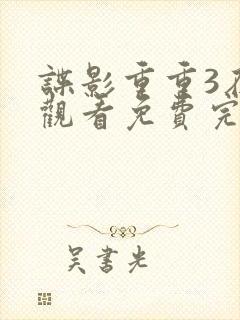 諜影重重3在
觀看免費完
吴書光